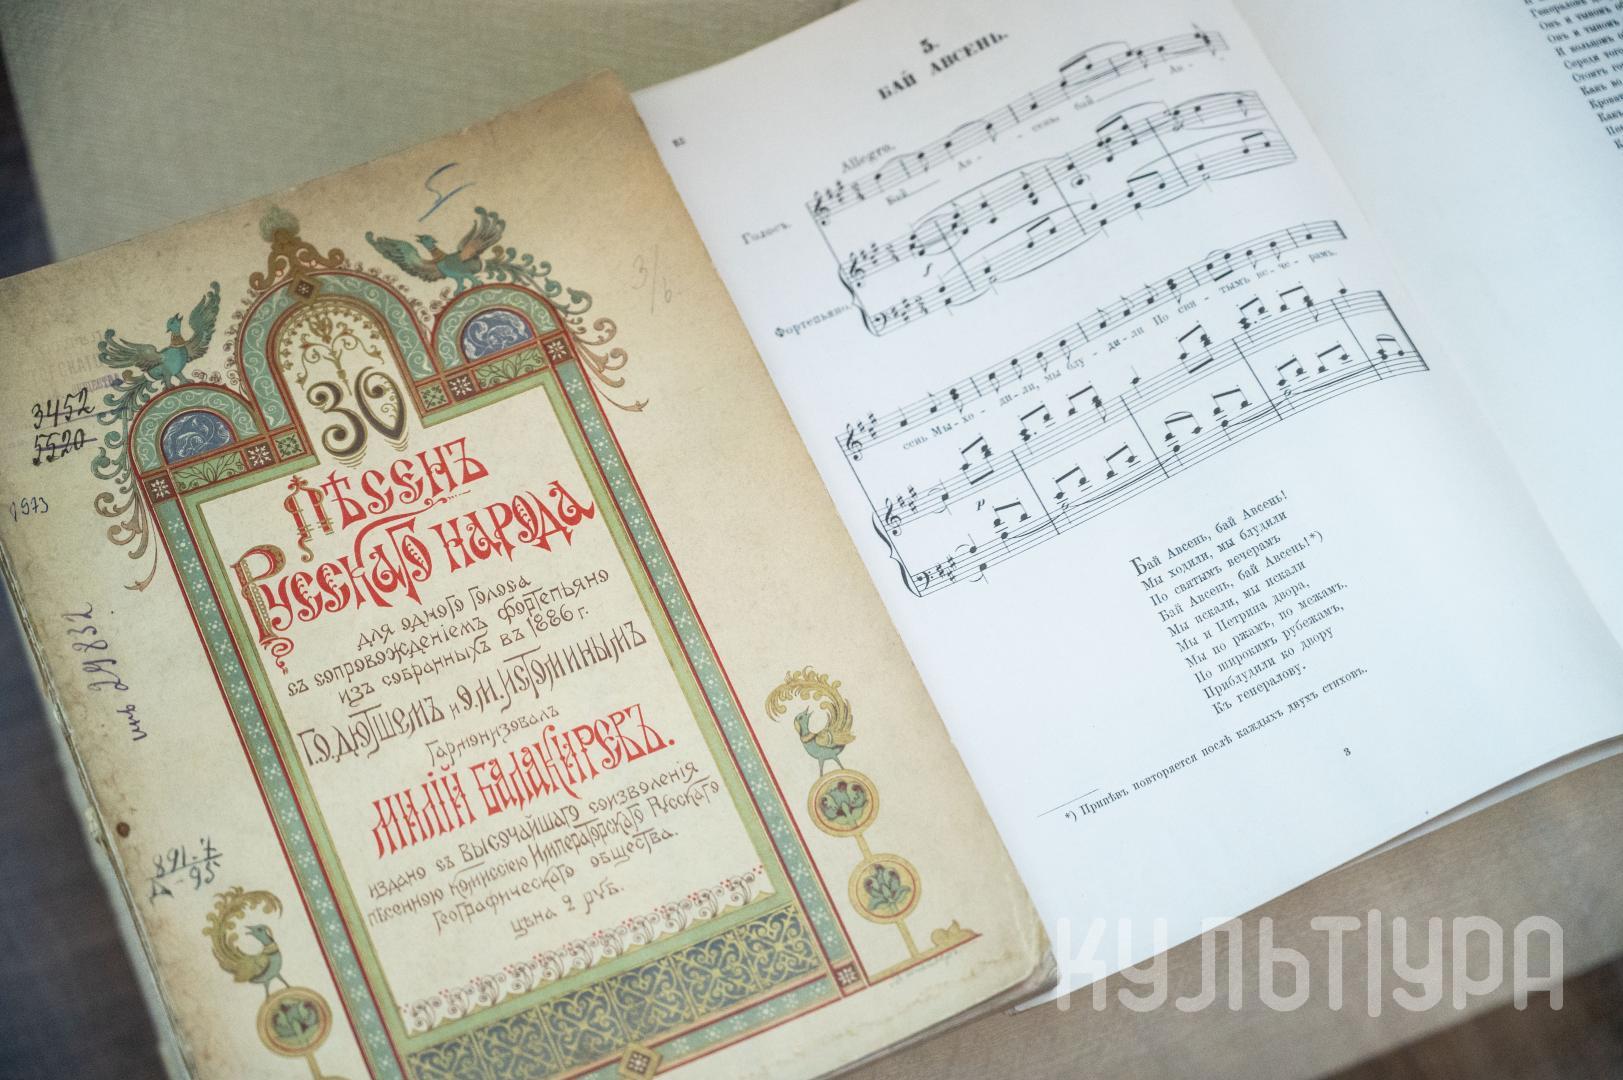 3452
5520
1973
инв 29832
891.7
Б-95
3/6.
30
Пѣсенъ
Русскаго народа
для одного голоса
съ сопровожденіемъ фортепьяно
изъ собранныхъ въ 1886 г.
Г.О. Дютшемъ и Ѳ.М. Истоминымъ
Гармонизовалъ
Милій Балакиревъ.
издано съ высочайшаго соизволенія
пѣсенною комиссіею Императорскаго Русскаго
Географическаго общества.
цѣна 2 руб.
5.
БАЙ АВСЕНЬ.
Allegro.
Голосъ.
Бай Ав - сень, бай Ав -
f
Фортепьяно.
сень Мы хо - ди - ли, мы блу - ди - ли По свя - тымъ ве - че - рамъ.
p
Бай Авсень, бай Авсень!
Мы ходили, мы блудили
По святымъ вечерамъ
Бай Авсень, бай Авсень!*)
Мы искали, мы искали
Мы и Петрина двора,
Мы по ржамъ, по межамъ.
По широкимъ рубежамъ,
Приблудили ко двору
Къ генералову.
*) Припѣвъ повторяется послѣ каждыхъ двухъ стиховъ.
3
Генераловъ
Онъ и тыномъ
И кольцомъ
Середи того
Стоитъ
КУЛЬТУРА